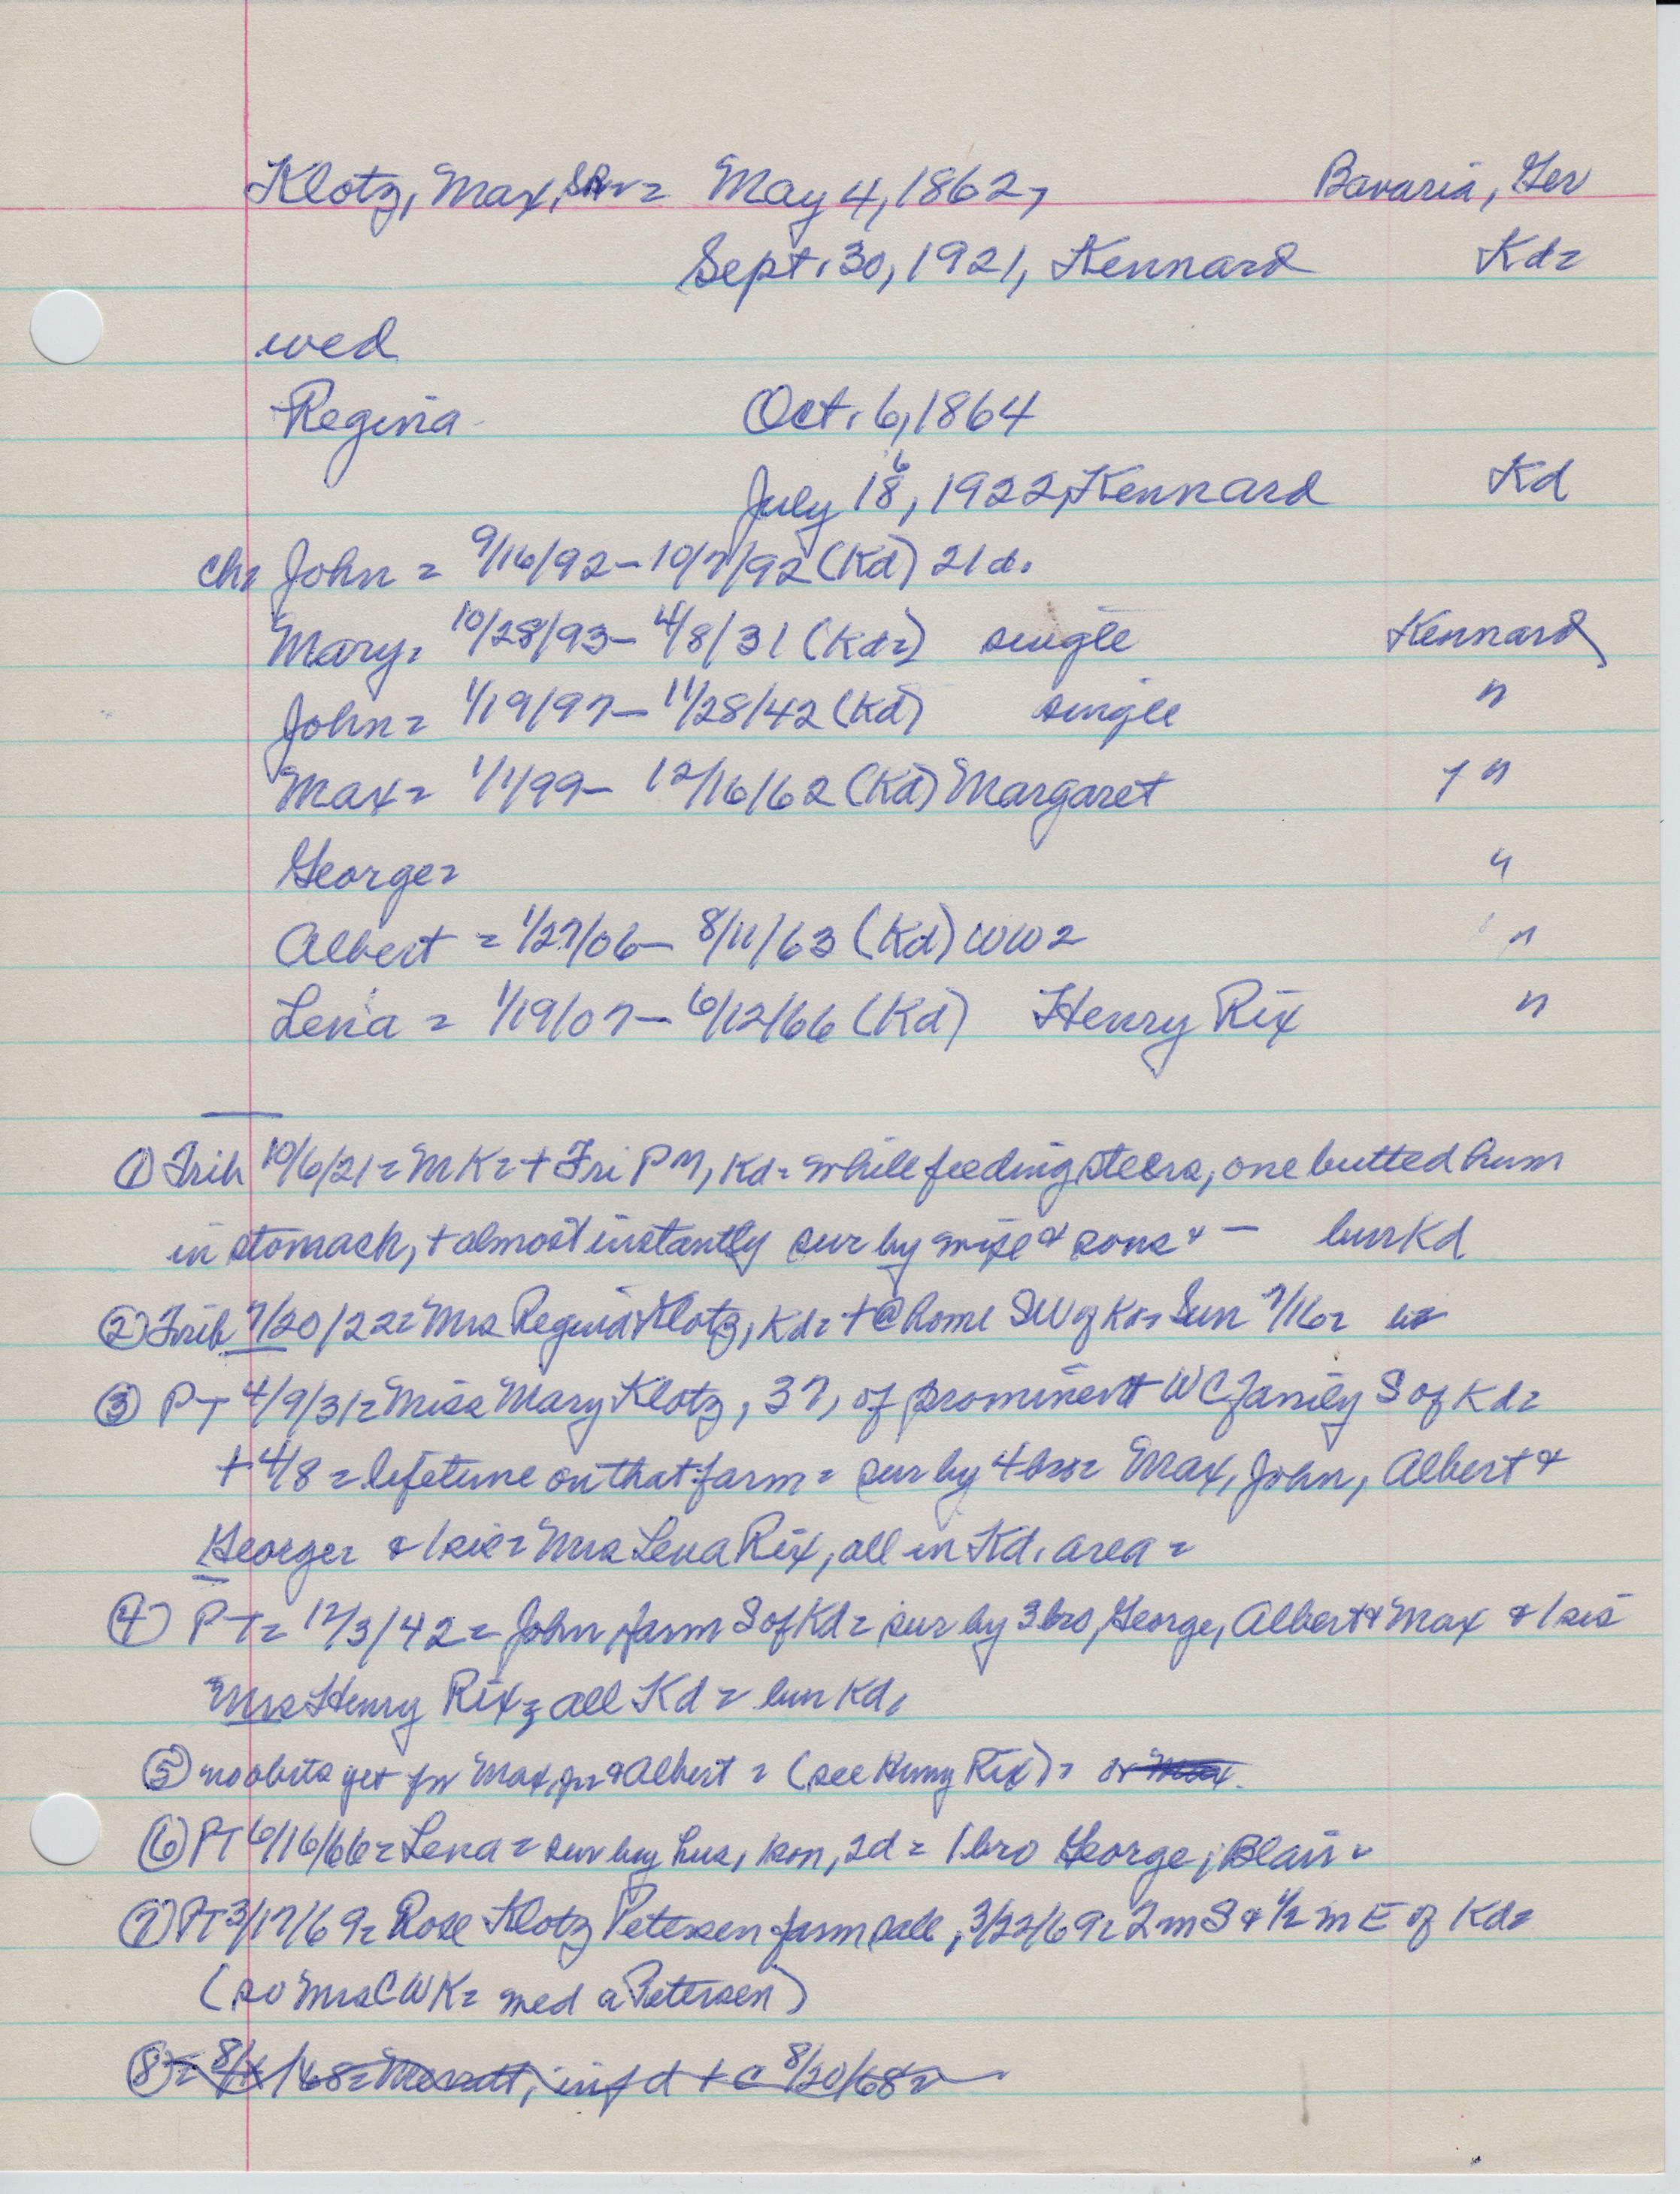 Klotz, Max, SR = May 4, 1862, Bavaria, Ger
Sept. 30, 1921, Kennard Kd=
wed
Regina Oct. 6, 1864
6
July 18, 1922, Kennard Kd
ch= John = 9/16/92 - 10/7/92 (Kd) 21d.
Mary = 10/28/93 - 4/8/31 (Kd=) single Kennard
John = 1/19/97 - 11/28/42 (Kd) single "
Max = 1/1/99 - 12/16/62 (Kd) Margaret "
George = "
Albert = 1/27/06 - 8/11/63 (Kd) WW2 "
Lena = 1/19/07 - 6/12/66 (Kd) Henry Rix "
① Trib 10/6/21 = MK = + Fri PM, Kd = while feeding steers, one butted him
in stomach, + almost instantly sur by wife & sons & — bur Kd
② Trib 7/20/22 = Mrs Regina Klotz, Kd = + @ home SW of Kd = Sun 7/16 =
③ PT 4/9/31 = Miss Mary Klotz, 37, of prominent WC family S of Kd =
+ 4/8 = lifetime on that farm = sur by 4 bro = Max, John, Albert &
George = & 1 sis = Mrs Lena Rix, all in Kd. area =
④ PT = 12/3/42 = John, farm S of Kd = sur by 3 bro, George, Albert & Max & 1 sis
Mrs Henry Rix = all Kd = bur Kd.
⑤ no obits yet for Max, jr & Albert = (see Henry Rix) = or Max.
⑥ PT 6/16/66 = Lena = sur by hus, 1 son, 2d = 1 bro George, Blair =
⑦ PT 3/17/69 = Rose Klotz Petersen farm sale, 3/22/69 = 2 m S & 1/2 m E of Kd =
(so Mrs CWK = wed a Petersen)
⑧ = /68 = inf d + c 8/20/68 =